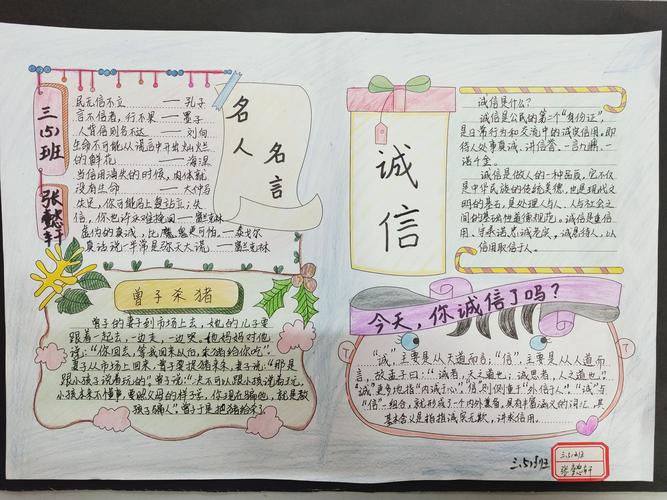 三(5)班
张懿轩
民无信不立——孔子
言不信者,行不果——墨子
人背信则名不达——刘向
生命不可能从谎言中开出灿烂
的鲜花——海涅
当信用消失的时候,肉体就
没有生命——大仲马
失足,你可能马上复站立;失
信,你也许永难挽回——富兰克林
虚伪的真诚,比魔鬼更可怕——泰戈尔
真话说一半常是弥天大谎——富兰克林
名人
名言
曾子杀猪
曾子的妻子到市场上去,她的儿子要
跟着一起去,一边走,一边哭。他妈妈对他
说:“你回去,等我回来以后,杀猪给你吃”。
妻子从市场上回来,曾子要捉猪来杀,妻子说:“那是
跟小孩子说着玩的”。曾子说:“决不可以跟小孩说着玩。
小孩本来不懂事,要照父母的样子学,你现在骗他,就是教
孩子骗人”。曾子于是把猪给杀了。
诚信
诚信是什么?
诚信是公民的第二个“身份证”,
是日常行为和交流中的诚实信用。即
待人处事真诚、讲信誉、一言九鼎、一
诺千金。
诚信是做人的一种品质,它不仅
是中华民族的传统美德,也是现代文
明的基石,是处理人与人、人与社会之
间的基础性道德规范。诚信是重信
用、守承诺、忠诚老实,诚恳待人,以
信用取信于人。
今天,你诚信了吗?
“诚”,主要是从天道而言,“信”,主要是从人道而
言,故孟子曰:“诚者,天之道也;诚思者,人之道也。”
“诚”更多地指“内诚于心”,“信”则侧重于“外信于人”。“诚”与
“信”一组合,就形成了一个内外兼备,具有丰富涵义的词汇,其
基本含义是指诚实无欺,讲求信用。
三(5)班
三(5)班
张懿轩